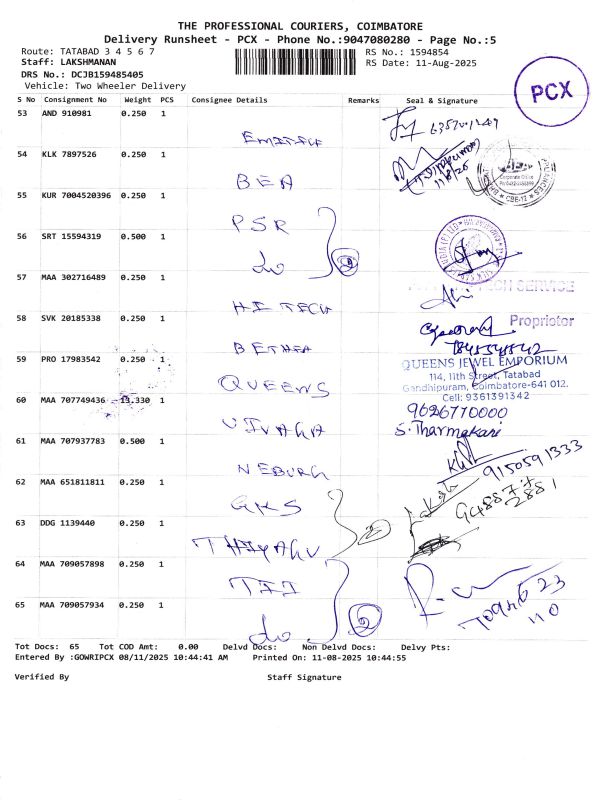 THE PROFESSIONAL COURIERS, COIMBATORE
Delivery Runsheet - PCX - Phone No.:9047080280 - Page No.:5
Route: TATABAD 3 4 5 6 7
RS No.: 1594854
Staff: LAKSHMANAN
RS Date: 11-Aug-2025
DRS No.: DCJB159485405
Vehicle: Two Wheeler Delivery
PCX
S No Consignment No Weight PCS Consignee Details Remarks Seal & Signature
53 AND 910981 0.250 1
54 KLK 7897526 0.250 1
BEA
11/8/25
Corporate Office
CBE-12
55 KUR 7004520396 0.250 1
PSR
56 SRT 15594319 0.500 1
do
2
57 MAA 302716489 0.250 1
HI TECH
TECH SERVICE
58 SVK 20185338 0.250 1
Proprietor
BETHEA
59 PRO 17983542 0.250 1
QUEENS JEWEL EMPORIUM
114, 11th Street, Tatabad
Gandhipuram, Coimbatore-641 012.
Cell: 9361391342
QUEENS
60 MAA 707749436 13.330 1
9626770000
S. Tharmakari
61 MAA 707937783 0.500 1
9150591333
NEBURG
62 MAA 651811811 0.250 1
GKS
2
63 DDG 1139440 0.250 1
THIYAGU
64 MAA 709057898 1
0.250
65 MAA 709057934 0.250 1
do
2
Tot Docs: 65 Tot COD Amt: 0.00 Delvd Docs: Non Delvd Docs: Delvy Pts:
Entered By :GOWRIPCX 08/11/2025 10:44:41 AM Printed On: 11-08-2025 10:44:55
Verified By Staff Signature